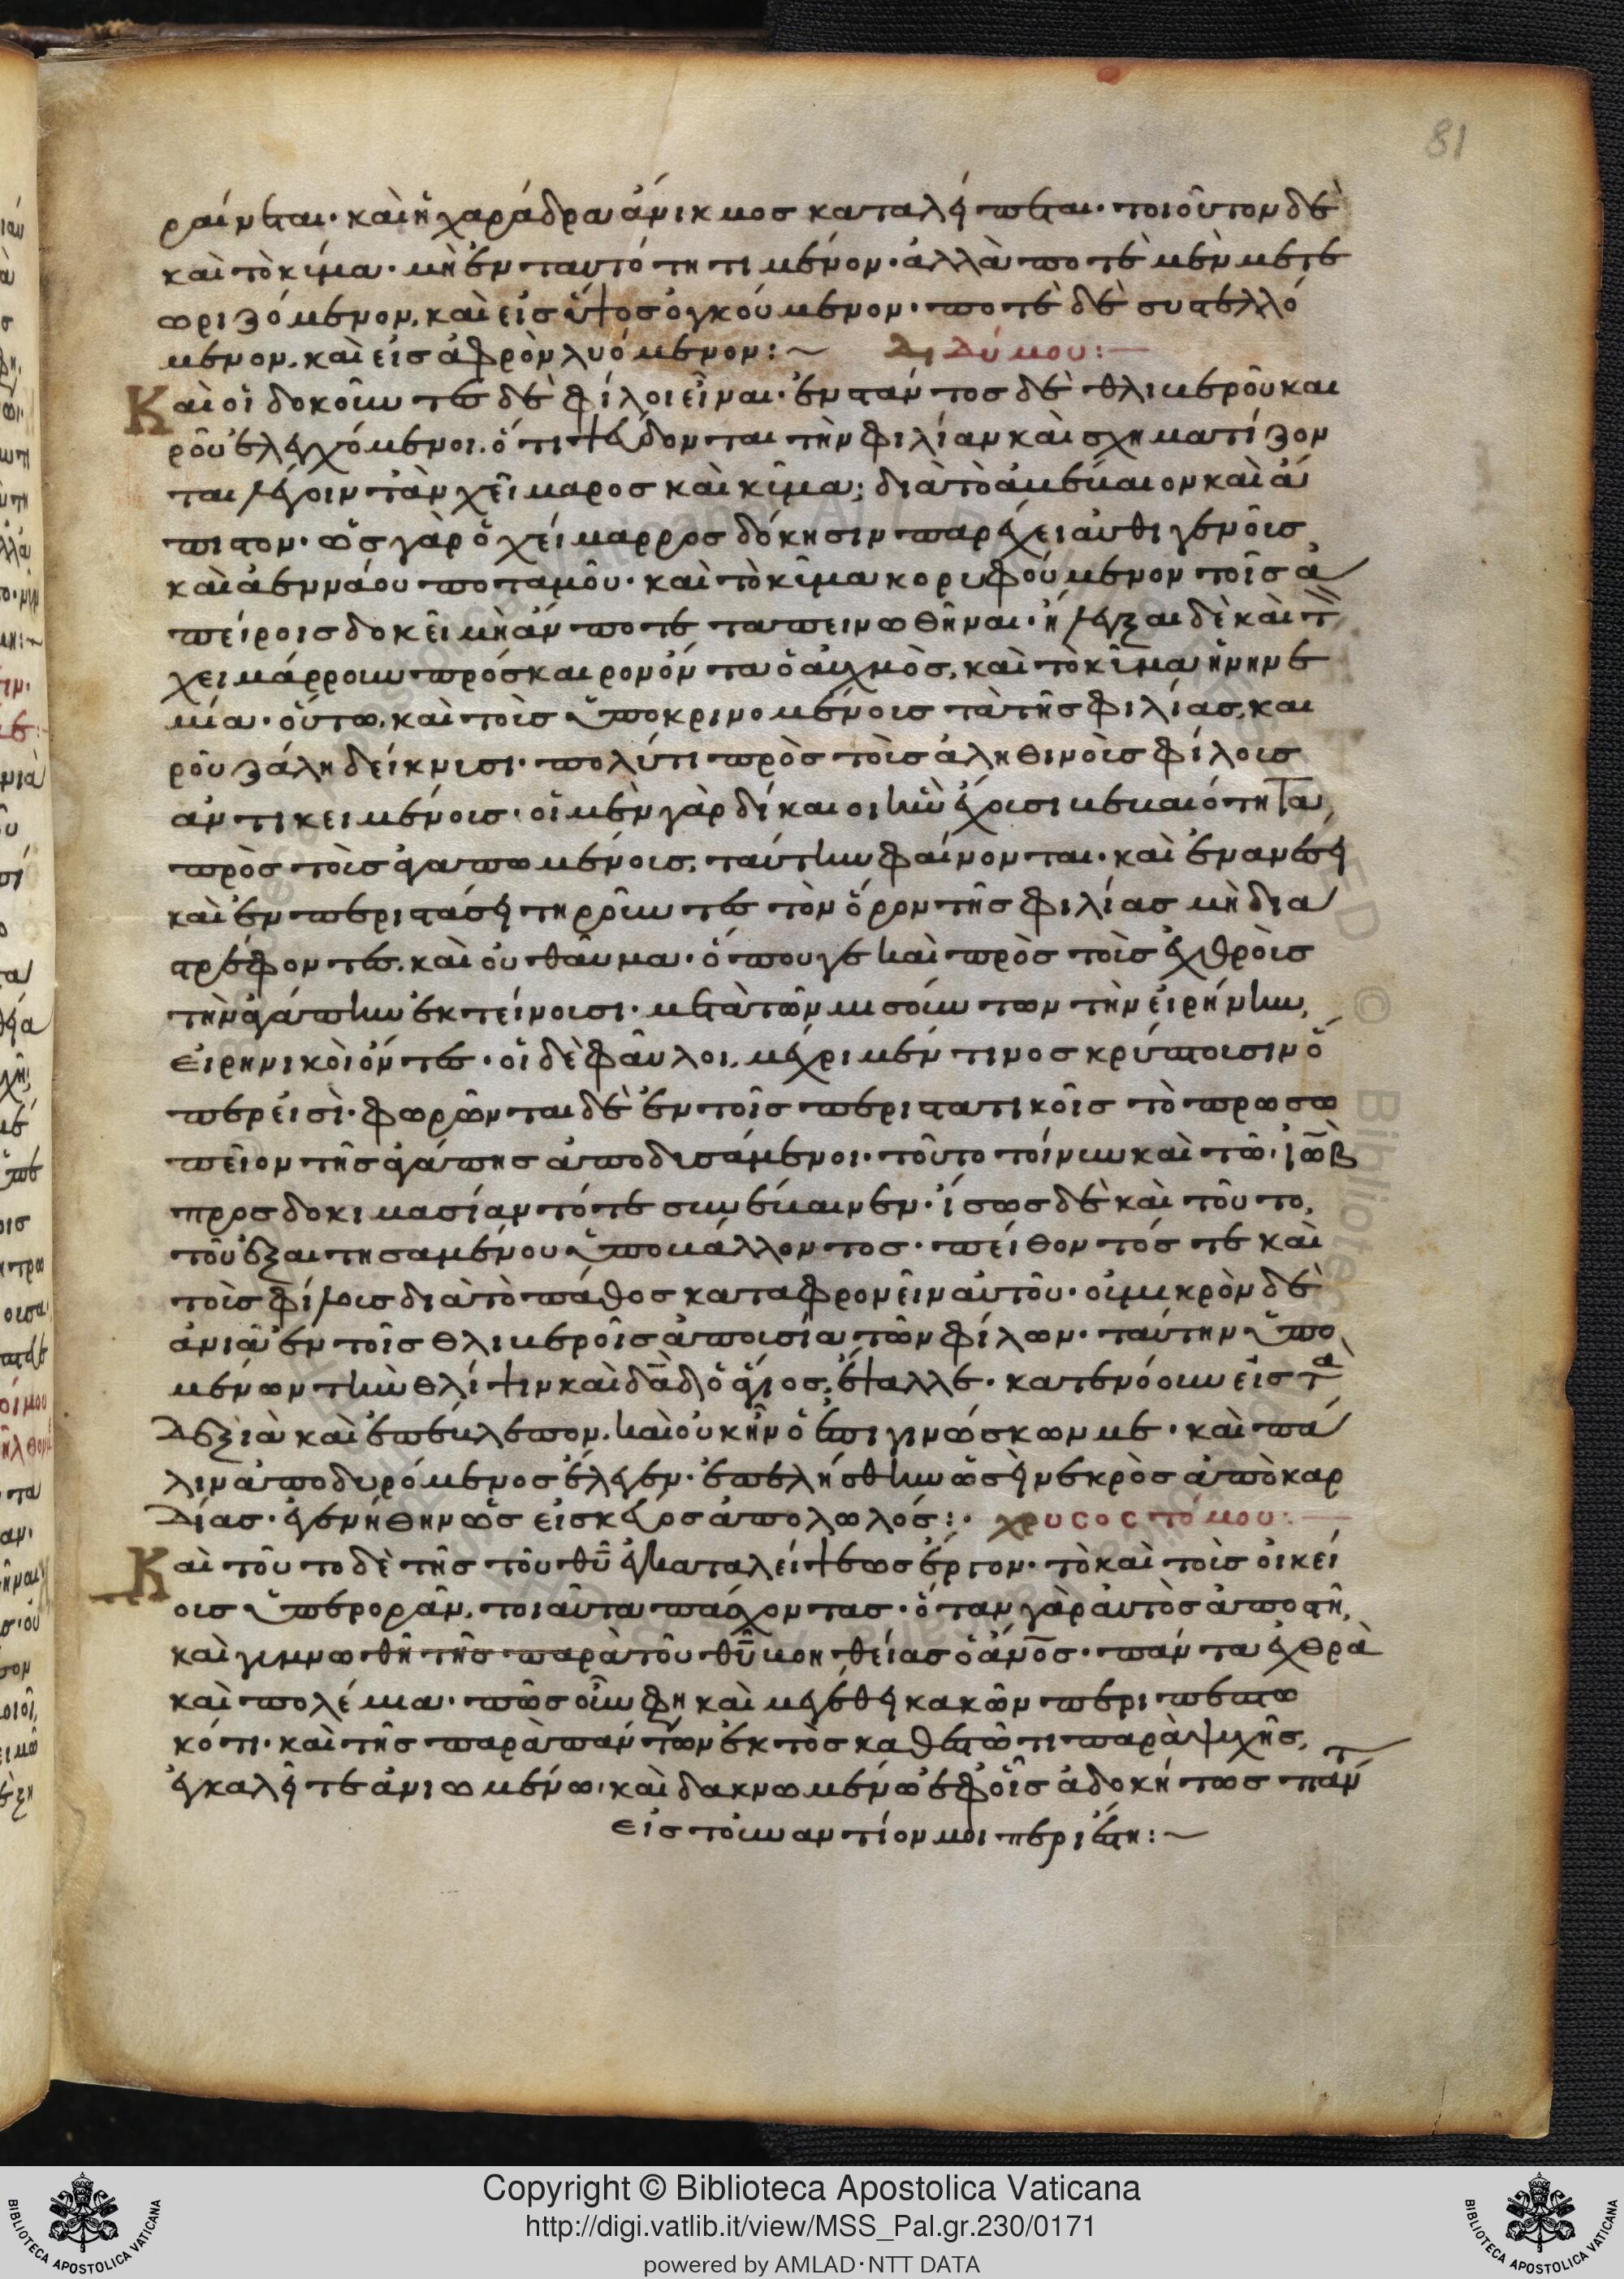 81
ραίνεται· καὶ ἡ χαράδρα ἄνικμος καταλείπεται· τοιοῦτον δὲ
καὶ τὸ κύμα· μὴ ἐν ταυτότητι μένον· ἀλλὰ ποτὲ μὲν μετε
ωριζόμενον, καὶ εἰς ὕψος ὀγκούμενον· ποτὲ δὲ συστελλό
μενον, καὶ εἰς ἀφρὸν λυόμενον:~ Διδύμου:—
Καὶ οἱ δοκοῦντες δὲ φίλοι εἶναι· ἐνστάντος δὲ θλιβεροῦ και
ροῦ ἐλεγχόμενοι, ὅτι ψεύδονται τὴν φιλίαν καὶ σχηματίζον
ται λέγοιντ' ἂν χείμαρος καὶ κῦμα; διὰ τὸ ἀβέβαιον καὶ ἄ
πιστον· ὡς γὰρ ὁ χείμαρρος δόκησιν παρέχει αὐθιγενοῖς
καὶ ἀεννάου ποταμοῦ· καὶ τὸ κῦμα κορυφούμενον τοῖς ἀ
πείροις δοκεῖ μὴ ἄν ποτε ταπεινωθῆναι· ἤλεγξαι δὲ καὶ τ̅
χειμάρρουν πρόσκαιρον ὄντα ὁ αὐχμὸς, καὶ τὸ κῦμα ἡ νηνε
μία· οὕτω, καὶ τοῖς ὑποκρινομένοις τὰ τῆς φιλίας, και
ροῦ ζάλη δείκνυσι· πολύ τι πρὸς τοῖς ἀληθινοῖς φίλοις
ἀντικειμένοις· οἱ μὲν γὰρ δίκαιοι ἣν ἔχουσι βεβαιότητα
πρὸς τοῖς ἀγαπωμένοις, ταύτην φαίνονται· καὶ ἐν ἀνέσει
καὶ ἐν περιστάσει τηροῦντες τὸν ὅρον τῆς φιλίας μὴ δια
στρέφοντες. καὶ οὐ θαῦμα· ὅπου γε καὶ πρὸς τοῖς ἐχθροῖς
τὴν ἀγάπην ἐκτείνουσι· μετὰ τῶν μισούντων τὴν εἰρήνην,
εἰρηνικοὶ ὄντες· οἱ δὲ φαῦλοι, μέχρι μέν τινος κρύπτουσιν ὅ
περ εἰσὶ· φωρῶνται δὲ ἐν τοῖς περιστατικοῖς τὸ προσω
πεῖον τῆς ἀγάπης ἀποδυσάμενοι· τοῦτο τοίνυν καὶ τῶ ἰὼβ
προσδοκιμασίαν τότε συνέβαινεν· ἴσως δὲ καὶ τοῦτο,
τοῦ ἐξαιτησαμένου ὑποβάλλοντος· πείθοντός τε καὶ
τοῖς φίλοις διὰ τὸ πάθος καταφρονεῖν αὐτοῦ· οὐ μικρὸν δὲ
ἀνιᾶ ἐν τοῖς θλιβεροῖς ἀπουσία τῶν φίλων· ταύτην ὑπο
μένων τὴν θλίψιν καὶ δᾱδ ὁ ἅγιος, ἔψαλλε· κατενόουν εἰς τὰ
δεξιὰ καὶ ἐπέβλεπον, καὶ οὐκ ἦν ὁ ἐπιγινώσκων με· καὶ πά
λιν ἀποδυρόμενος ἔλεγεν· ἐπελήσθην ὡσεὶ νεκρὸς ἀπὸ καρ
δίας· ἐγενήθην ὡς εἰ σκεῦος ἀπολωλός:· χρυσοστόμου:—
Καὶ τοῦτο δὲ τῆς τοῦ θ̅υ̅ ἐγκαταλείψεως ἔργον· τὸ καὶ τοῖς οἰκεί
οις ὑπερορᾶν, τοιαῦτα πάσχοντας· ὅταν γὰρ αὐτὸς ἀποστῆ,
καὶ γυμνωθῆ τῆς παρὰ τοῦ θ̅υ̅ βοηθείας ὁ ἀν̅ο̅ς· πάντα ἐχθρὰ
καὶ πολέμια· πῶς οὖν φη καὶ μεγέθει κακῶν περιπεπτω
κότι· καὶ τῆς παρὰ πάντων ἐκτὸς καθεστῶτι παραψυχῆς,
ἐγκαλεῖτε ἀνιωμένω· καὶ δακνωμένω ἐφ' οἷς ἀδοκήτως πάντ
εἰς τοὐναντίον μοι περιέστη:~